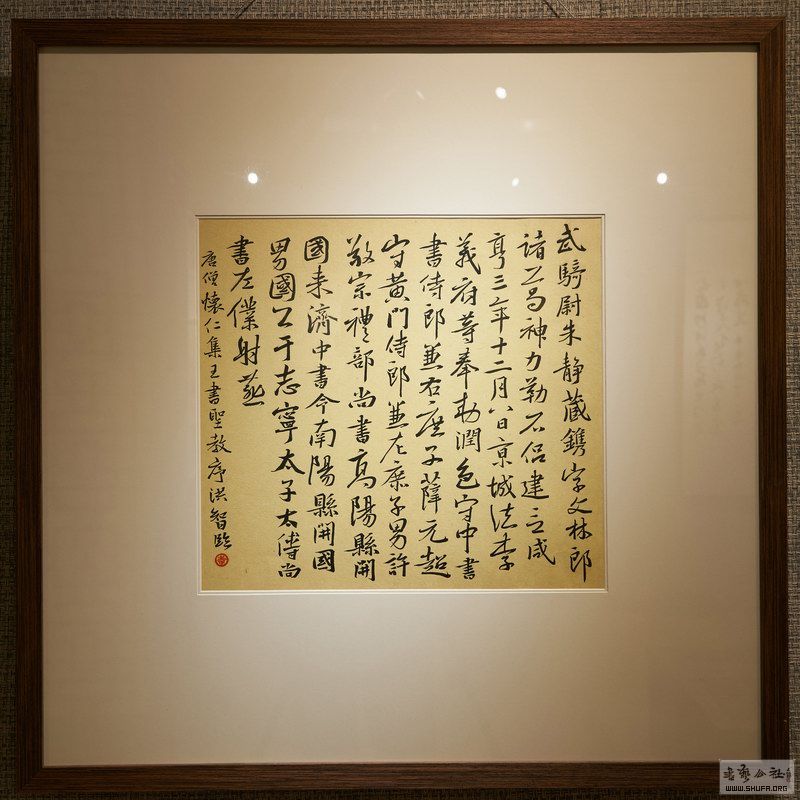 武騎尉朱静藏鐫字文林郎
諸葛神力勒石侣建立咸
亨三年十二月八日京城法李
義府等奉勅潤色守中書
書侍郎兼右庶子薛元超
守黄門侍郎兼左庶子男許
敬宗禮部尚書高陽縣開
國来濟中書令南陽縣開國
男國公于志寧太子太傅尚
書左僕射燕
唐僧懷仁集王書聖教序洪智臨
書藝公社
WWW.SHUFA.ORG